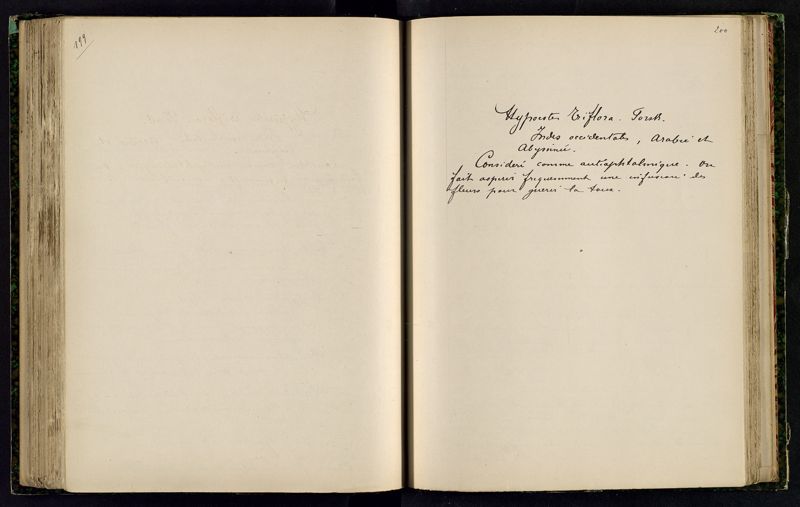 199
200
Hypoestes Triflora. Forsk.
Indes occidentales, Arabie et
Abyssinie.
Consideré comme antiophtalmique. On
fait aspirer frequemment une infusion des
fleurs pour guerir la toux.